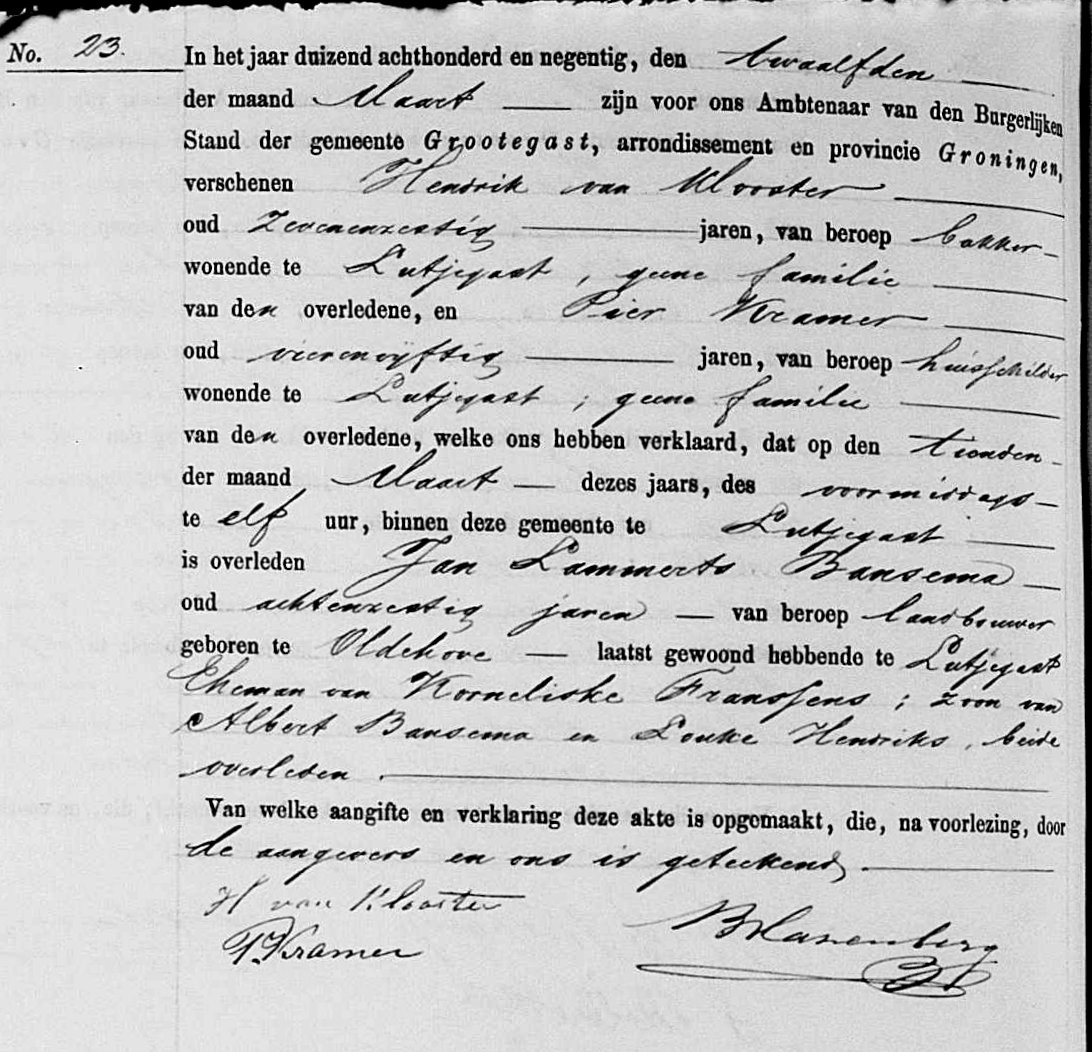 No. 23.
In het jaar duizend achthonderd en negentig, den twaalfden
der maand Maart zijn voor ons Ambtenaar van den Burgerlijken
Stand der gemeente Grootegast, arrondissement en provincie Groningen,
verschenen Hendrik van Klooster
oud zevenenzestig jaren, van beroep bakker
wonende te Lutjegast, geene familie
van den overledene, en Pier Kramer
oud vierenvijftig jaren, van beroep huisschilder
wonende te Lutjegast, geene familie
van den overledene, welke ons hebben verklaard, dat op den tienden
der maand Maart dezes jaars, des voormiddags
te elf uur, binnen deze gemeente te Lutjegast
is overleden Jan Lammerts Bansema
oud achtenzestig jaren van beroep landbouwer
geboren te Oldehove laatst gewoond hebbende te Lutjegast
Eheman van Korneliske Franssens; zoon van
Albert Bansema en Louke Hendriks, beide
overleden.
Van welke aangifte en verklaring deze akte is opgemaakt, die, na voorlezing, door
de aangevers en ons is geteekend.
H van Klooster
P. Kramer